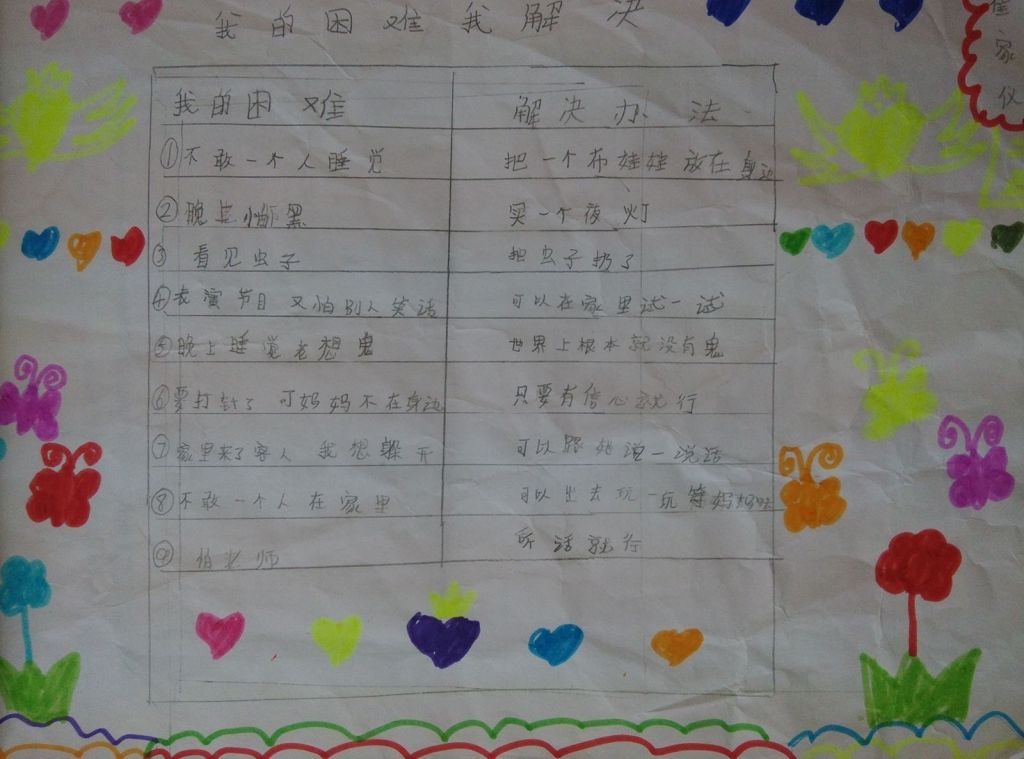 我的困难我解决
崔家仪
我的困难 解决办法
①不敢一个人睡觉 把一个布娃娃放在身边
②晚上怕黑 买一个夜灯
③看见虫子 把虫子扔了
④表演节目又怕别人笑话 可以在家里试一试
⑤晚上睡觉老想鬼 世界上根本就没有鬼
⑥要打针了可妈妈不在身边 只要有信心就行
⑦家里来了客人我想躲开 可以跟她说一说话
⑧不敢一个人在家里 可以出去玩一玩等妈妈
⑨怕老师 听话就行